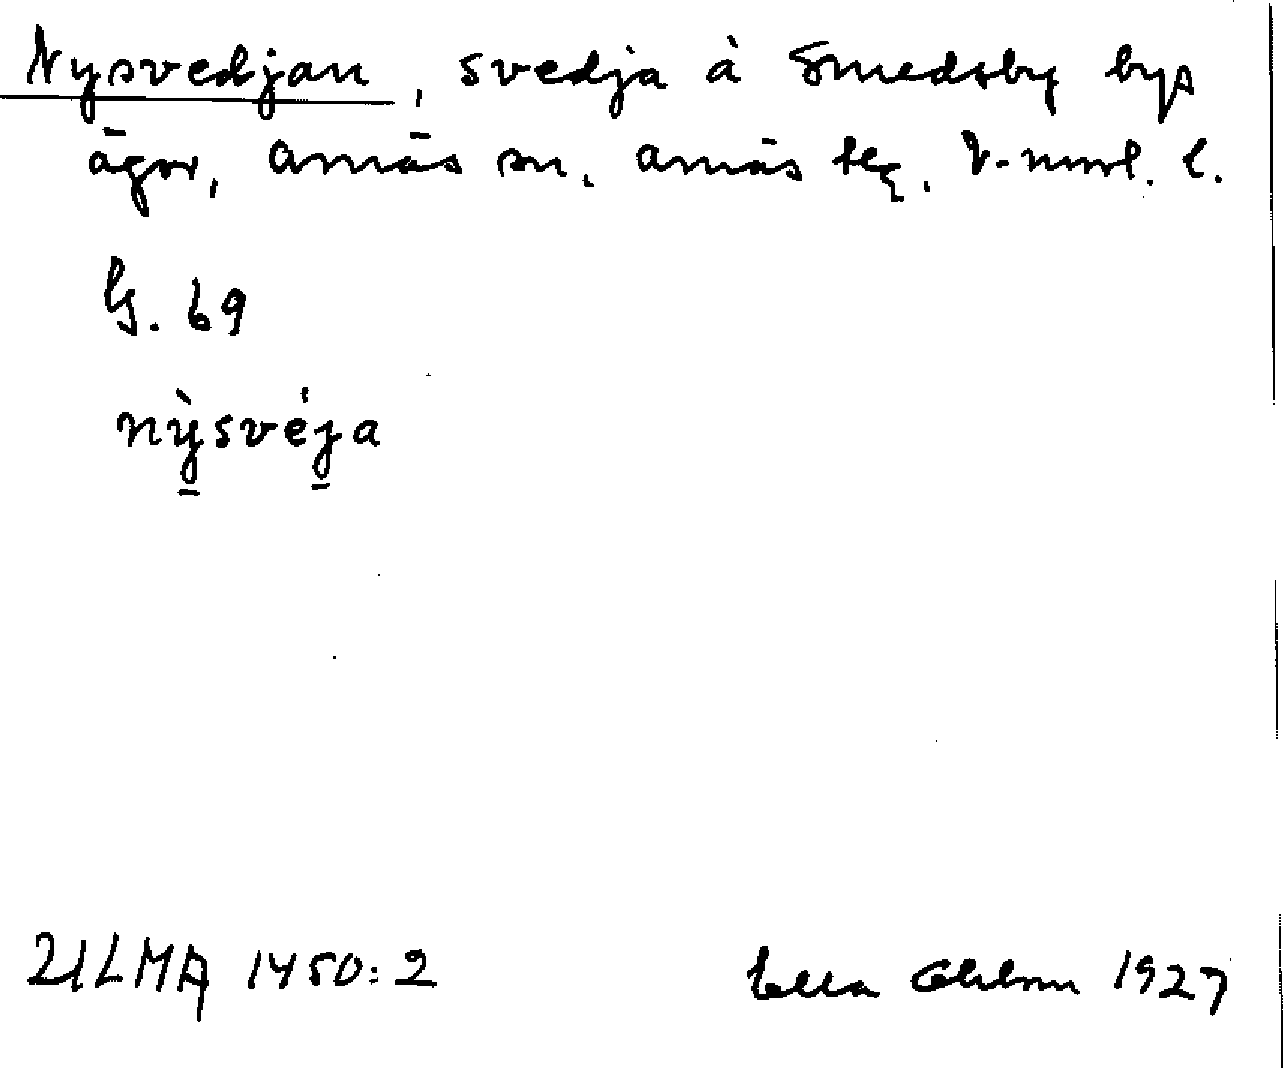 Nysvedjan, svedja å Smedsby bys
ägor, Arnäs sn. Arnäs tg. V-norrl. l.
G. 69
nỳsvéja
ULMA 1450:2 Ella Ohlson 1927